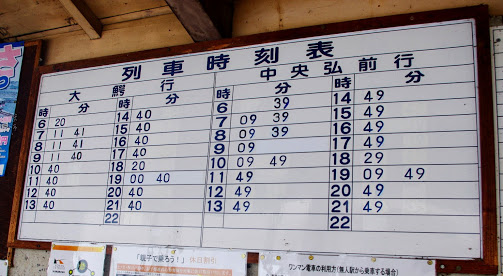 列車時刻表
大鰐行
時 分 時 分
6 20 14 40
7 11 41 15 40
8 11 41 16 40
9 11 40 17 40
10 40 18 20
11 40 19 00 40
12 40 20 40
13 40 21 40
22
中央弘前行
時 分 時 分
6 39 14 49
7 09 39 15 49
8 09 39 16 49
9 09 17 49
10 09 49 18 29
11 49 19 09 49
12 49 20 49
13 49 21 49
22
「親子で乗ろう!」 休日割引
ワンマン電車の利用方(無人駅から乗車する場合)